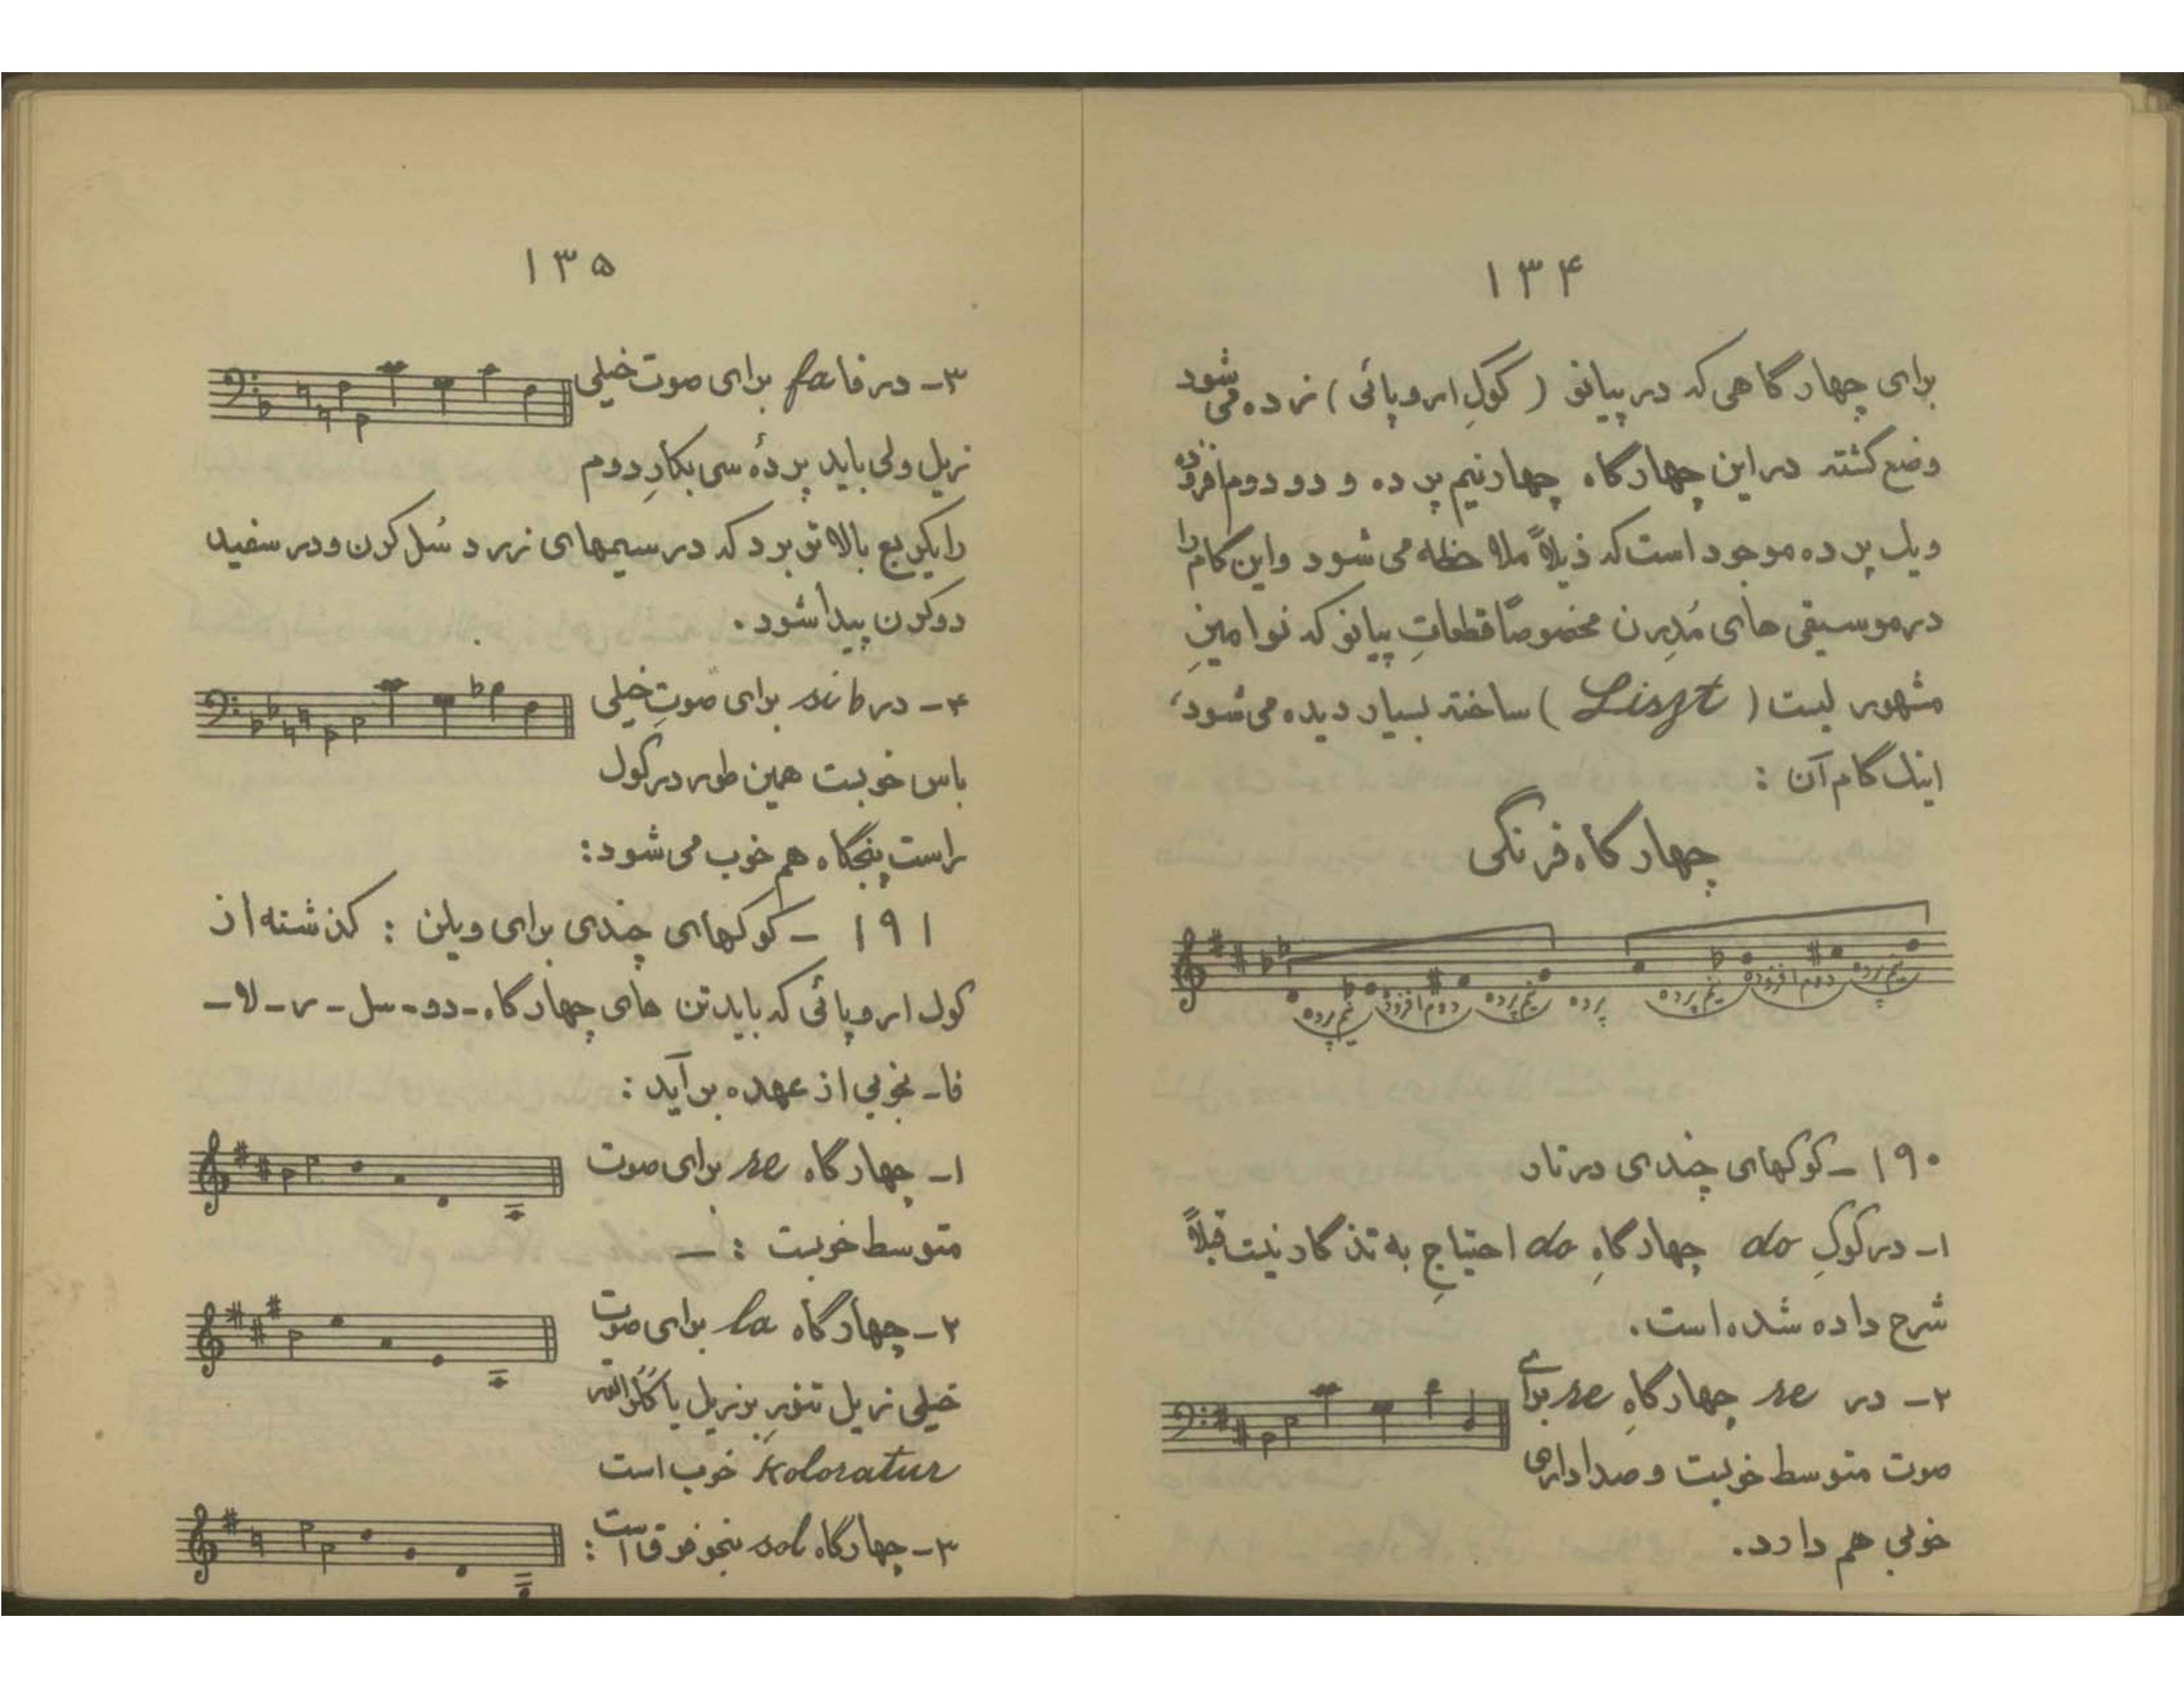 ۱۳۴
برای چهارگاهی که در پیانو (کوکِ اروپائی) زده می شود
وضع گشته در این چهارگاه چهار نیم پرده و دو دوم افزوده
و یک پرده موجود است که ذیلاً ملاحظه می شود و این گام را
در موسیقی های مُدِرن مخصوصاً قطعاتِ پیانو که نوامینِ
مشهور لیست (Liszt) ساخته بسیار دیده می شود،
اینک گام آن :
چهارگاه فرنگی
نیم پرده دوم افزوده نیم پرده پرده نیم پرده دوم افزوده نیم پرده
۱۹۰ - کوکهای چندی در تار
۱- در کوکِ do چهارگاهِ do احتیاجِ به تذکار نیست قبلاً
شرح داده شده است.
۲- در re چهارگاهِ re برای
صوت متوسط خوبست و صدا دارای
خوبی هم دارد.
۱۳۵
۳- در فا fa برای صوت خیلی
زیل ولی باید پردهٔ سی بکارِ دوم
را یکربع بالاتر برد که در سیمهای زرد سُل کرن و در سفید
دو کرن پیدا شود.
۴- در si b برای صوتِ خیلی
باس خوبست همین طور در کوک
راست پنجگاه هم خوب می شود:
۱۹۱ - کوکهای چندی برای ویلن : گذشته از
کوک اروپائی که باید تن های چهارگاه - دو - سل - ر - لا -
فا - بخوبی از عهده بر آید :
۱- چهارگاه re برای صوت
متوسط خوبست : -
۲- چهارگاه la برای صوت
خیلی زیل تنور بزیل یا کُلُراتور
Koloratur خوب است
۳- چهارگاه sol بنحو فوق است :